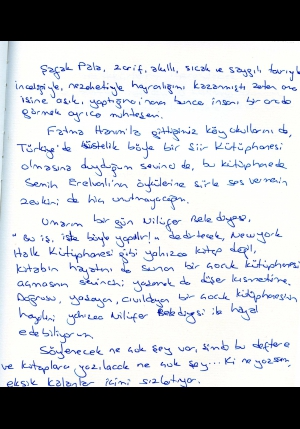 Şafak Pala, zarif, akıllı, sıcak ve saygılı tavrıyla
inceliğiyle, nezaketiyle hayranlığımı kazanmıştı zaten ama
işine aşık, yaptığına inanan bunca insanı bir arada
görmek ayrıca muhteşem.
Fatma Hanım'la gittiğimiz köy okullarını da,
Türkiye'de üstelik böyle bir Şiir Kütüphanesi
olmasına duyduğum sevinci de, bu kütüphanede
Semih Erelvanlı'nın öykülerine şiirle ses vermenin
zevkini de hiç unutmayacağım.
Umarım bir gün Nilüfer Belediyesi,
"Bu iş, işte böyle yapılır!" dedirterek, New York
Halk Kütüphanesi gibi yalnızca kitap değil,
kitabın hayatını da sunan bir çocuk kütüphanesi
açmasının sevincini yazmak da düşer kısmetime.
Doğrusu, yaşayan, cıvıldayan bir çocuk kütüphanesinin
hayalini yalnızca Nilüfer Belediyesi ile hayal
edebiliyorum.
Söylenecek ne çok şey var, şimdi bu deftere
ve kitaplara yazılacak ne çok şey... Ki ne yazsam,
eksik kalanlar içimi sızlatıyor.